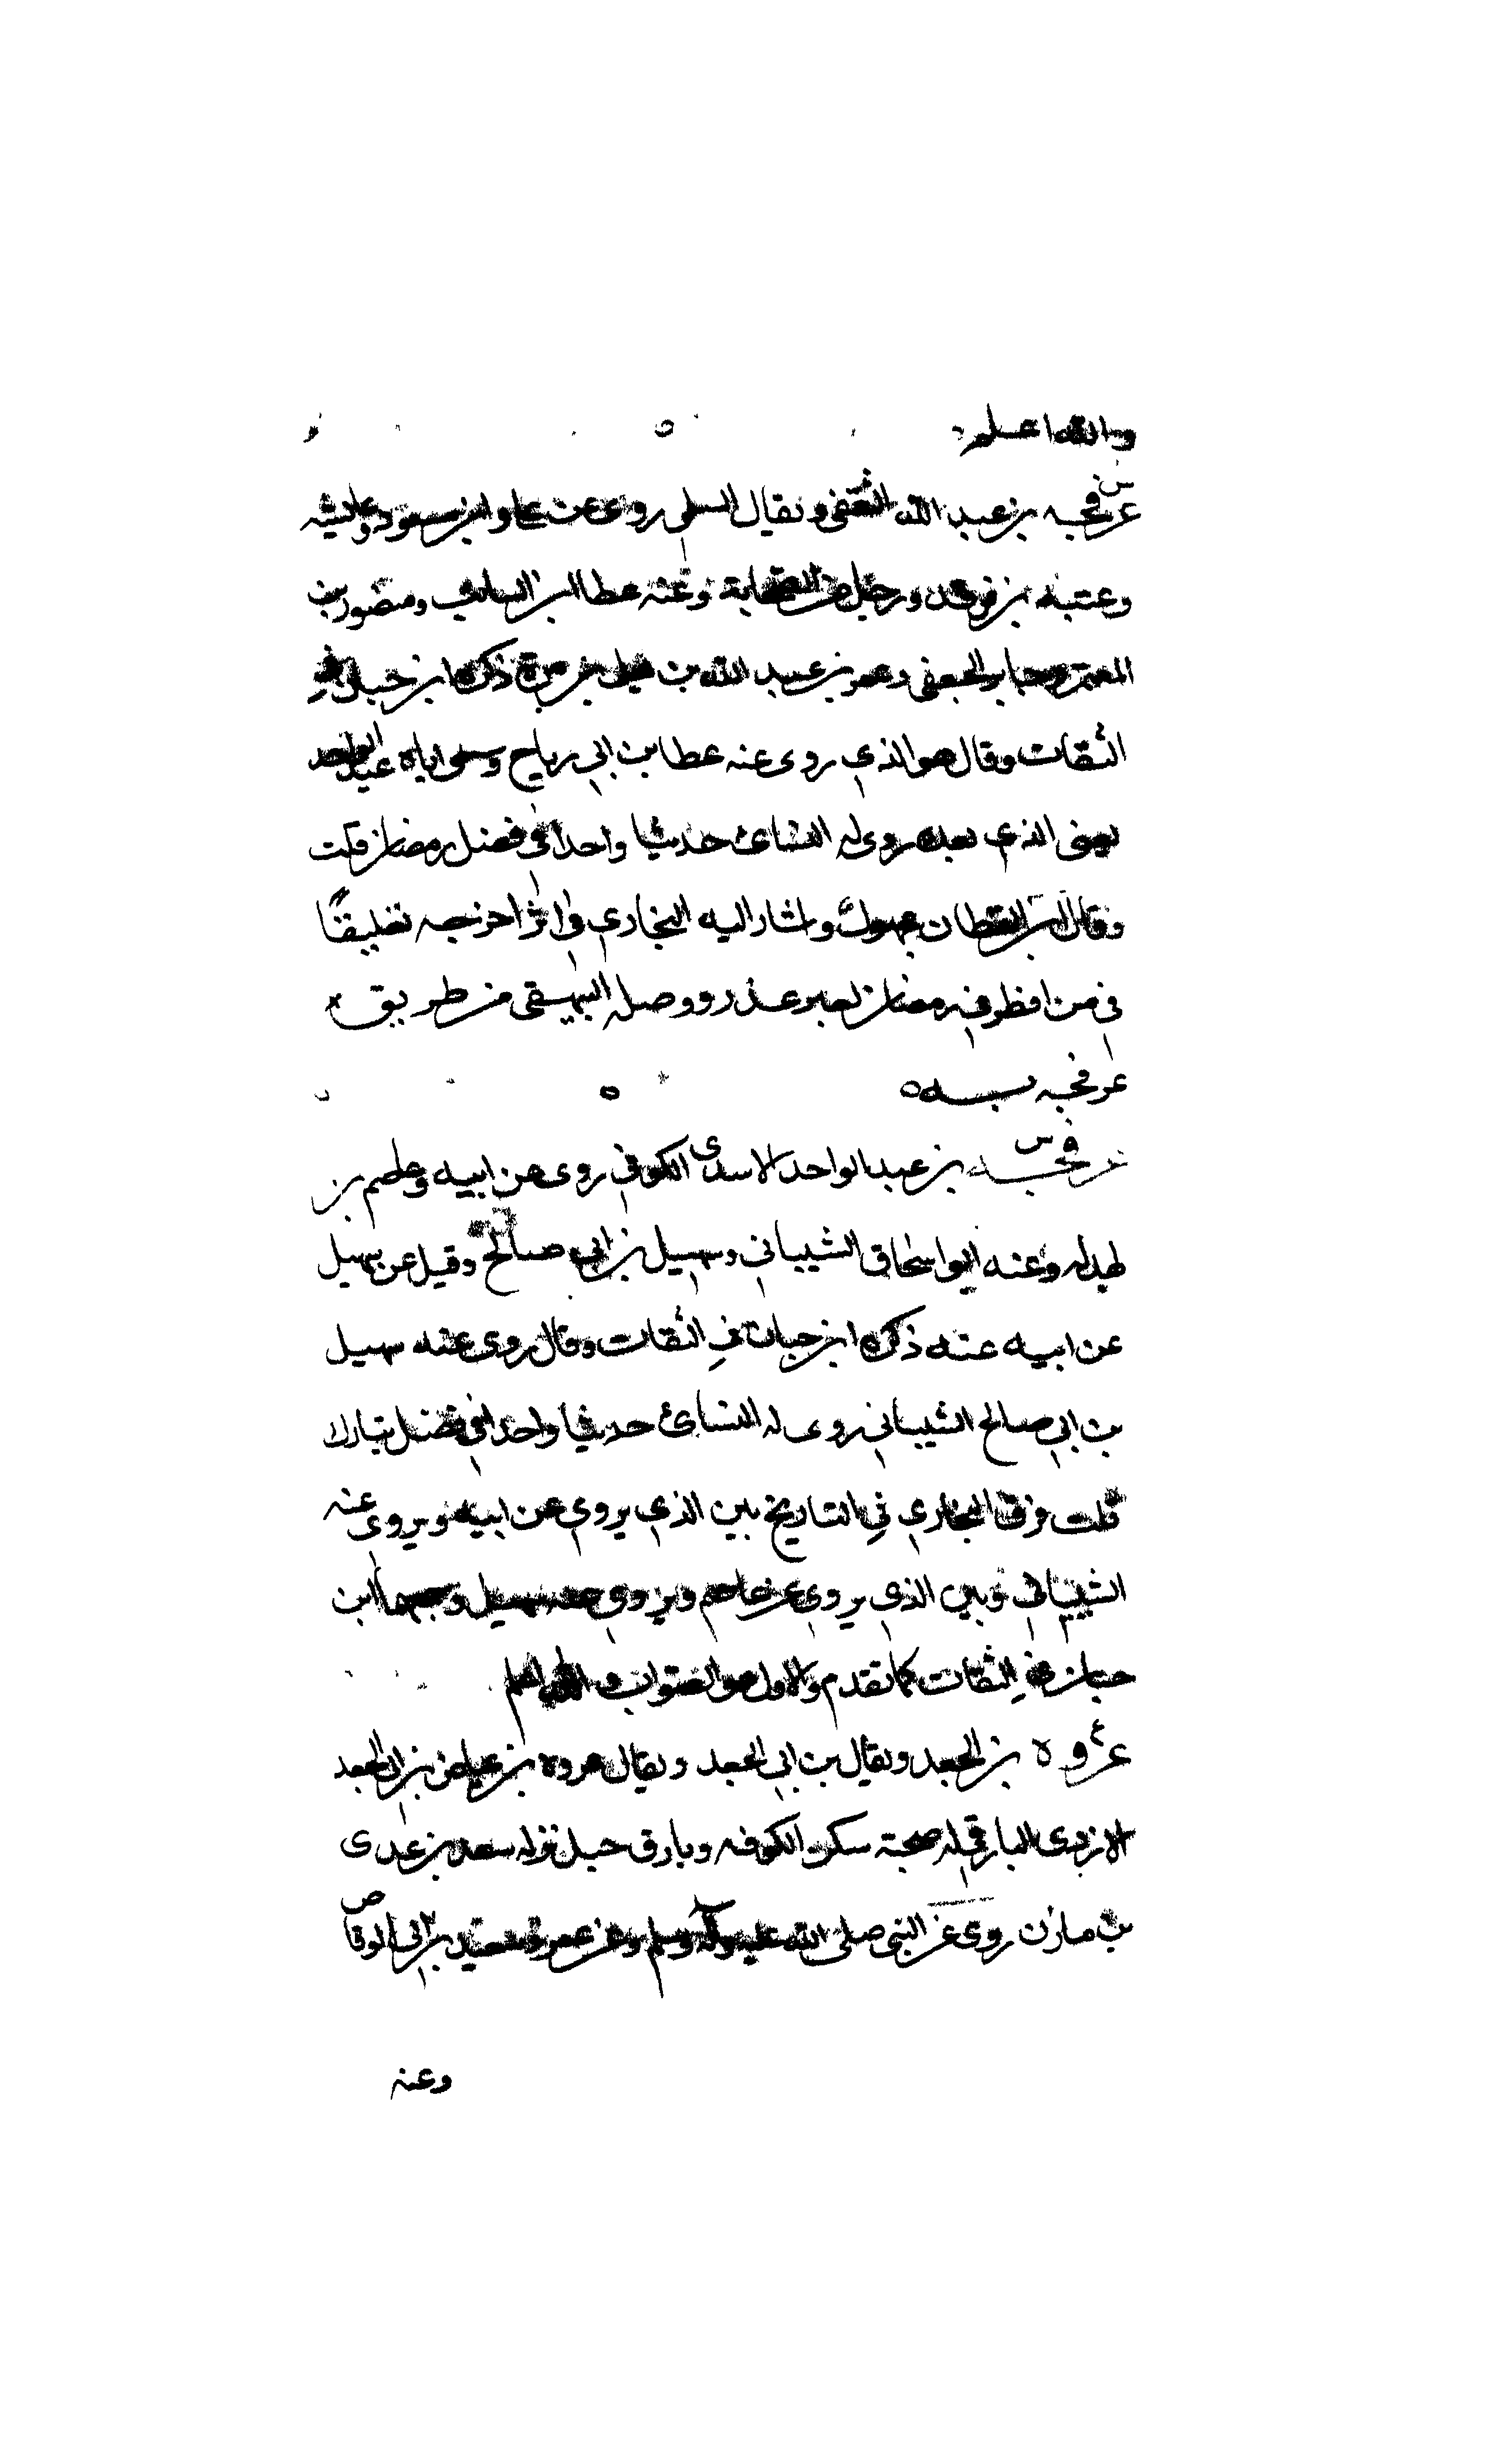 والله اعلم
س
عرفجه بن عبد الله الثقفي ويقال السلمي روى عن علي وابن مسعود وعايشه
وعتبه بن فرقد ورجل من الصحابة وعنه عطا بن السايب ومنصور بن
المعتمر وجابر الجعفي وعمر بن عبد الله بن يعلى بن مرة ذكره ابن حبان في
الثقات وقال هو الذي روى عنه عطا بن ابي رباح وسمى اباه عبد الواحد
يعني الذي بعده روى له النسائ حديثا واحدا في فضل رمضان قلت
وقال ابن القطان مجهول واشار اليه البخاري في اثر اخرجه تعليقًا
في من افطر في رمضان لغير عذر ووصله البيهقي من طريق
عرفجه به
س
عرفجه بن عبد الواحد الاسدي الكوفي روى عن ابيه وعاصم بن
بهدله وعنه ابو اسحاق الشيباني وسهيل بن ابي صالح وقيل عن سهيل
عن ابيه عنه ذكره ابن حبان في الثقات وقال روى عنه سهيل
بن ابي صالح الشيباني روى له النسائ حديثا واحدا في فضل تبارك
قلت فرق البخاري في التاريخ بين الذي يروي عن ابيه ويروي عنه
الشيباني وبين الذي يروي عن عاصم ويروي عنه سهيل وجمعهما ابن
حبان في الثقات كما تقدم والاول هو الصواب والله اعلم
ع
عروه بن الجعد ويقال بن ابي الجعد ويقال عروه بن عياض بن ابي الجعد
الازدي البارقي له صحبة سكن الكوفه وبارق جبل نزله سعد بن عدي
بن مازن روى عن النبي صلى الله عليه وآله وسلم وعن عمر وسعد بن ابي الوقاص
وعنه